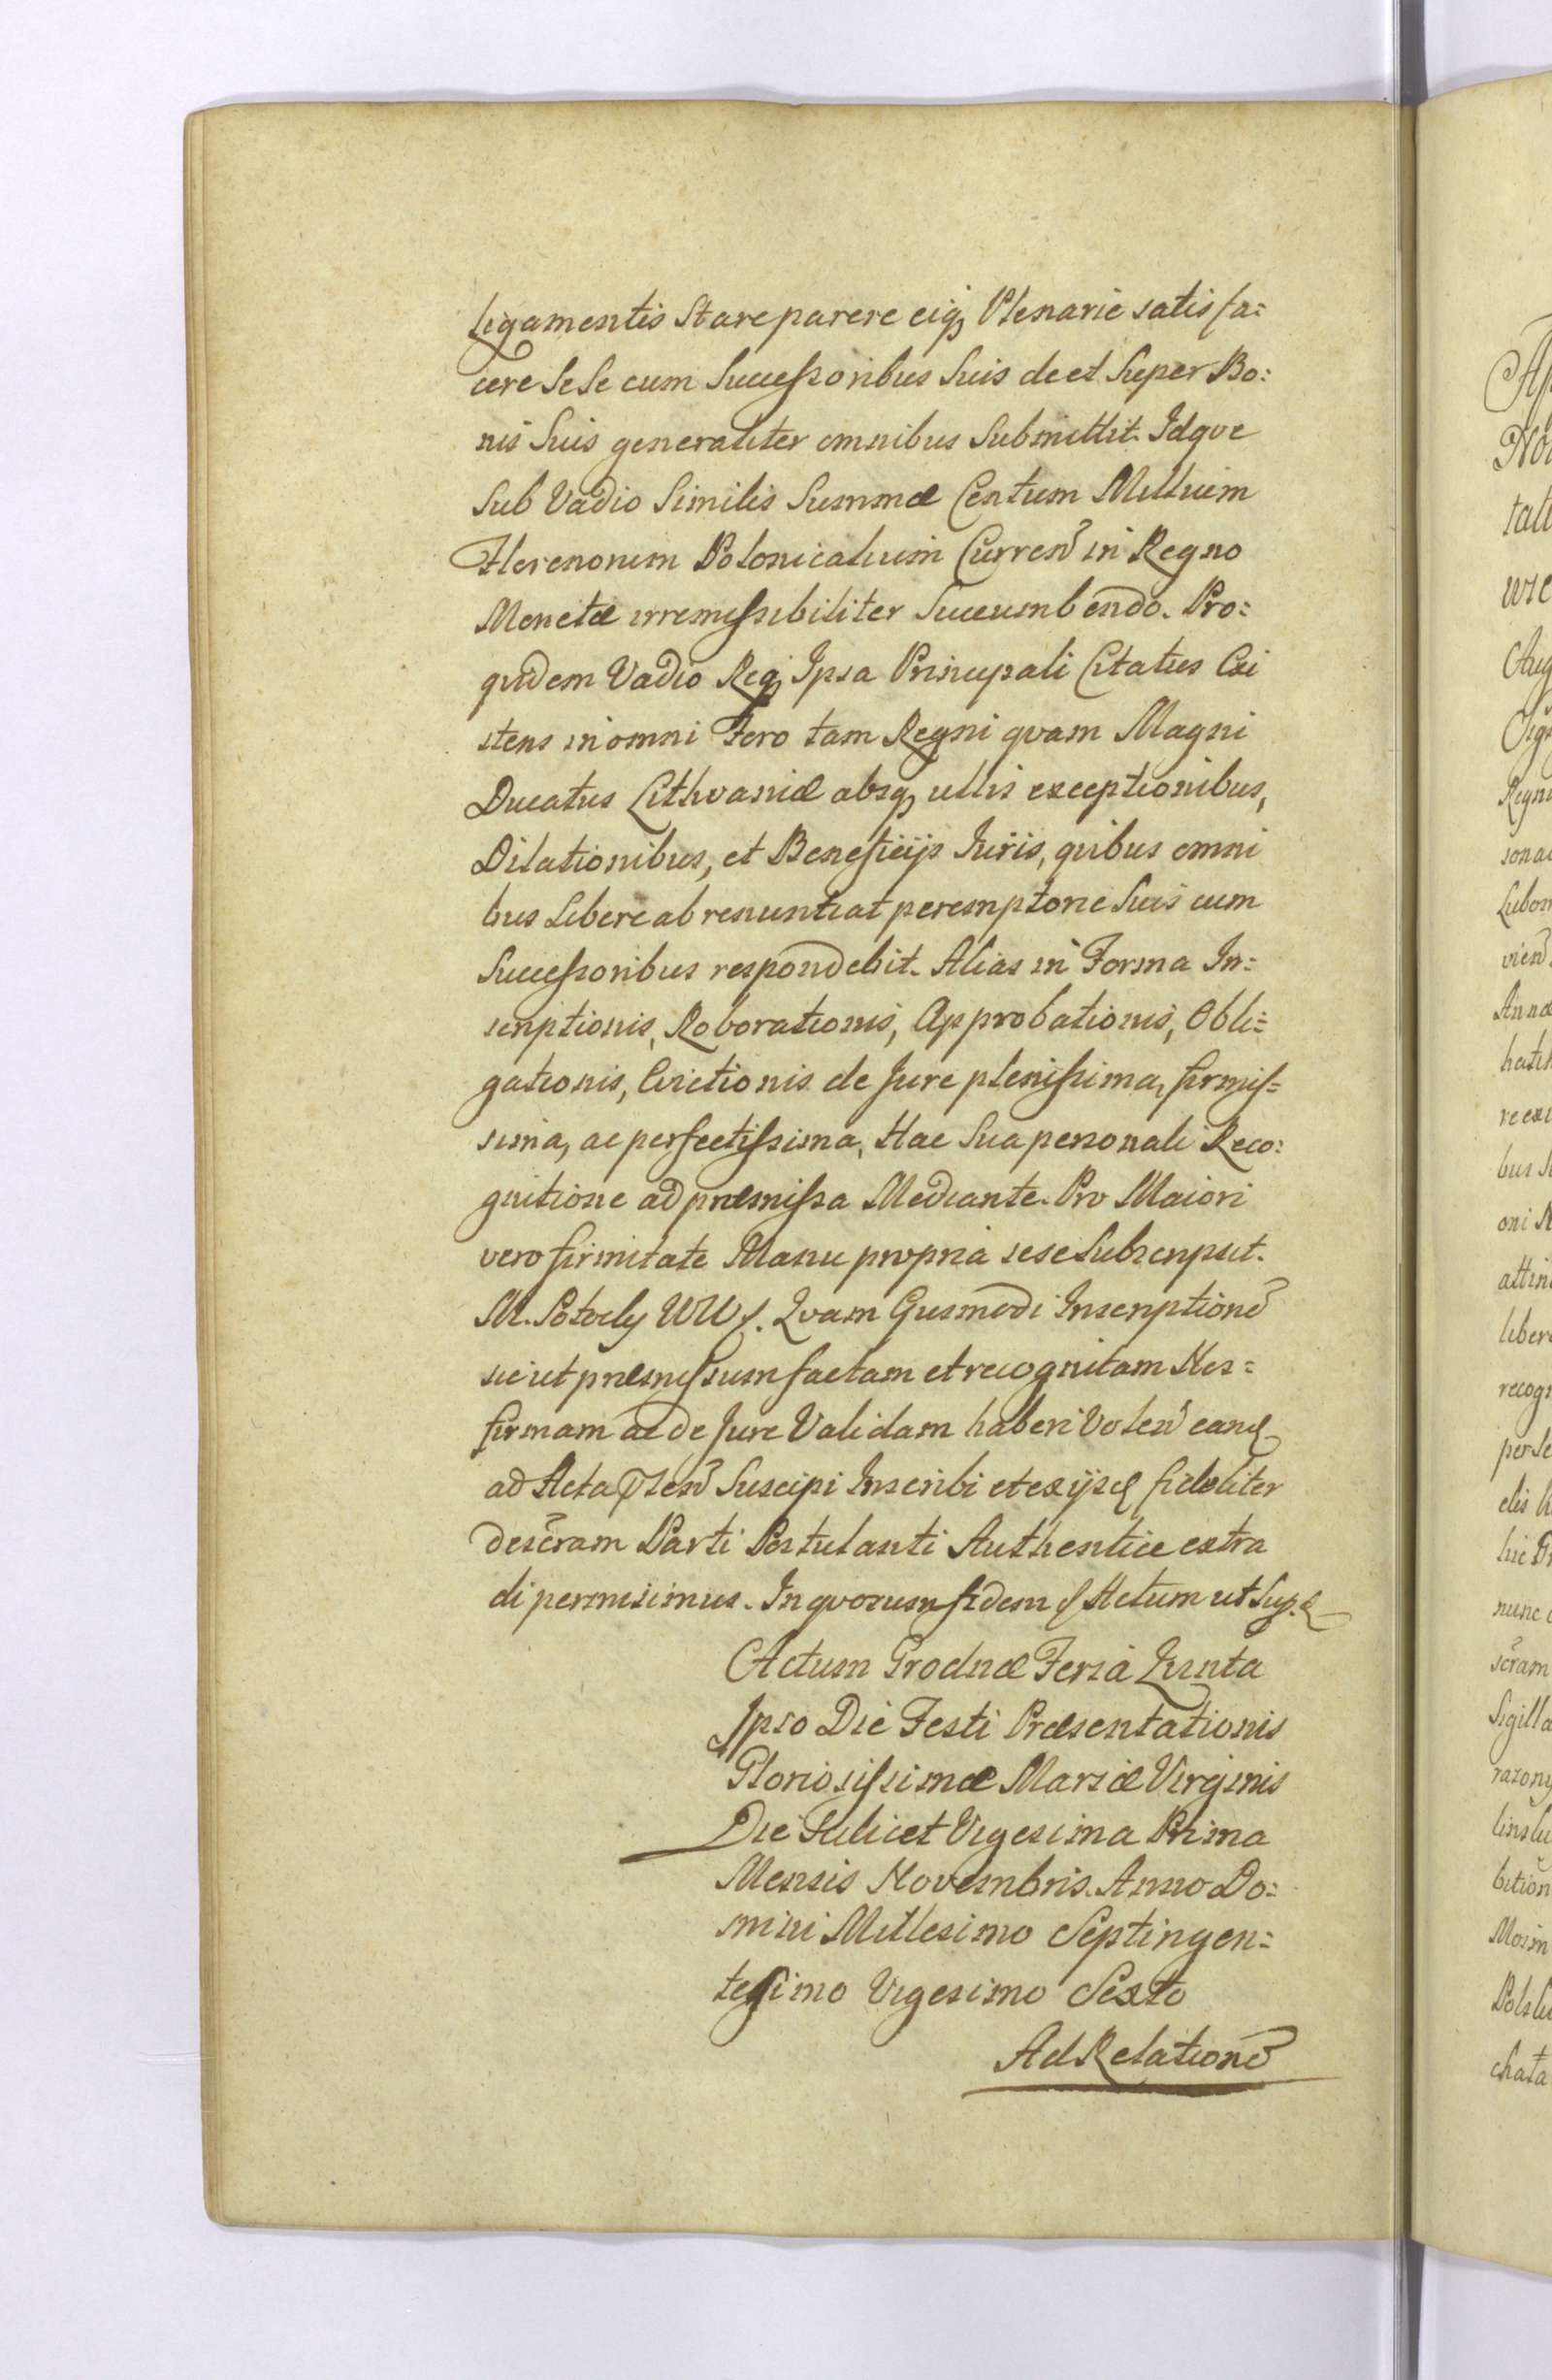 Ligamentis Stare parere eiq; Plenarie satisfa=
cere Sese cum Successoribus Suis de et Super Bo=
nis Suis generaliter omnibus Submittit. Idqve
Sub Vadio Similis Summæ Centum Millium
Florenorum Polonicalium Curren in Regno
Monetæ irremissibiliter Succumbendo. Pro=
qvidem Vadio Req; Ipsa Principali Citatus Exi
stens in omni Foro tam Regni qvam Magni
Ducatus Lithvaniæ absq; ullis exceptionibus,
Dilationibus, et Beneficijs Iuris, qvibus omni
bus Libere abrenuntiat peremptorie Suis cum
Successoribus respondebit. Alias in Forma In=
scriptionis, Roborationis, Approbationis, Obli=
gationis, Evictionis de Jure plenissima, firmis=
sima, ac perfectissima, Hac Sua personali Reco=
gnitione ad præmissa Mediante. Pro Maiori
vero firmitate Manu propria sese Subscripsit.
M. Potocky WW
 Qvam Eiusmodi Inscription
sic ut præmissum factam et recognitam Nos=
firmam ac de Jure Validam haberi Volen eand
ad Acta Pnsen Suscipi Inscribi et ex ijsd fideliter
descram Parti Postulanti Authentice extra
di permisimus. In qvorum fidem & Actum ut Sup.
Actum Grodnæ Feria Qvinta
Ipso Die Festi Præsentationis
Gloriosissimæ Mariæ Virginis
Die Scilicet Vigesima Prima
Mensis Novembris. Anno Do=
mini Millesimo Septingen=
tesimo Vigesimo Sexto
Ad Relation